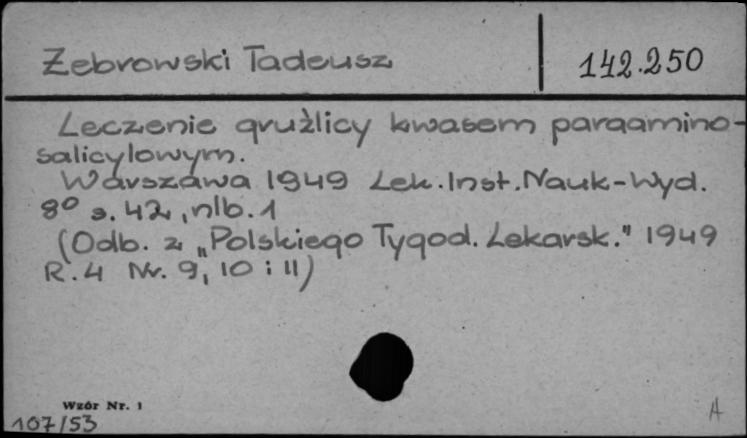 Żebrowski Tadeusz
142.250
Leczenie gruźlicy kwasem paraamino-
salicylowym.
Warszawa 1949 Lek. Inst. Nauk-Wyd.
8º s. 42, nlb. 1
(Odb. z „Polskiego Tygod. Lekarsk." 1949
R. 4 Nr. 9, 10 i 11)
Wzór Nr. 1
107/53
A